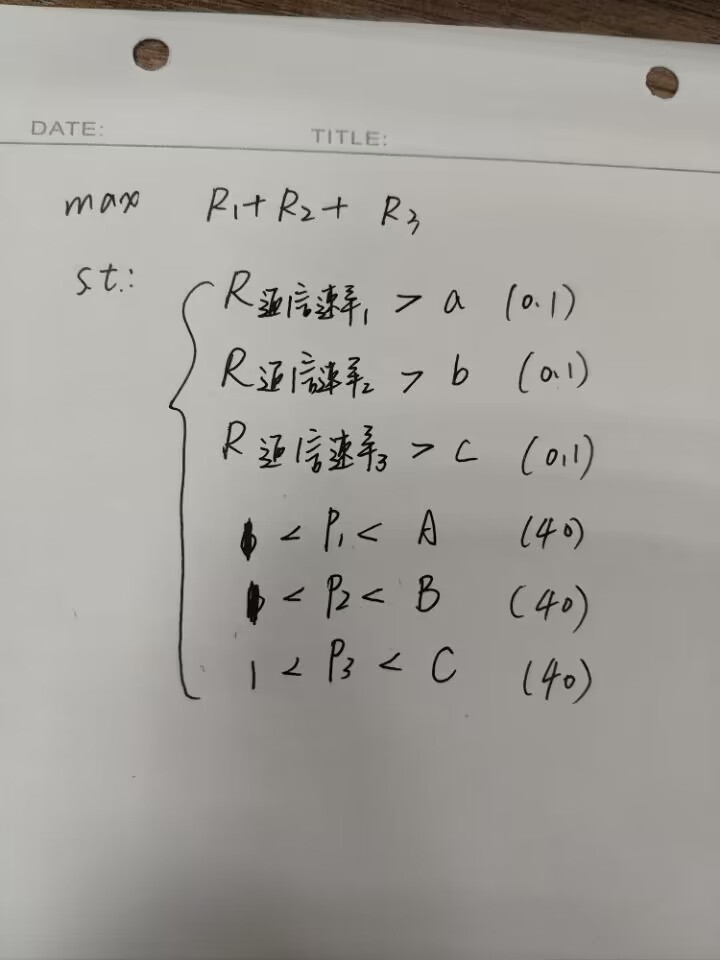 DATE: TITLE:
max R₁+ R₂ + R₃
s.t.:
R通信速率₁ > a (0.1)
R通信速率₂ > b (0.1)
R通信速率₃ > c (0.1)
< P₁ < A (40)
< P₂ < B (40)
1 < P₃ < C (40)